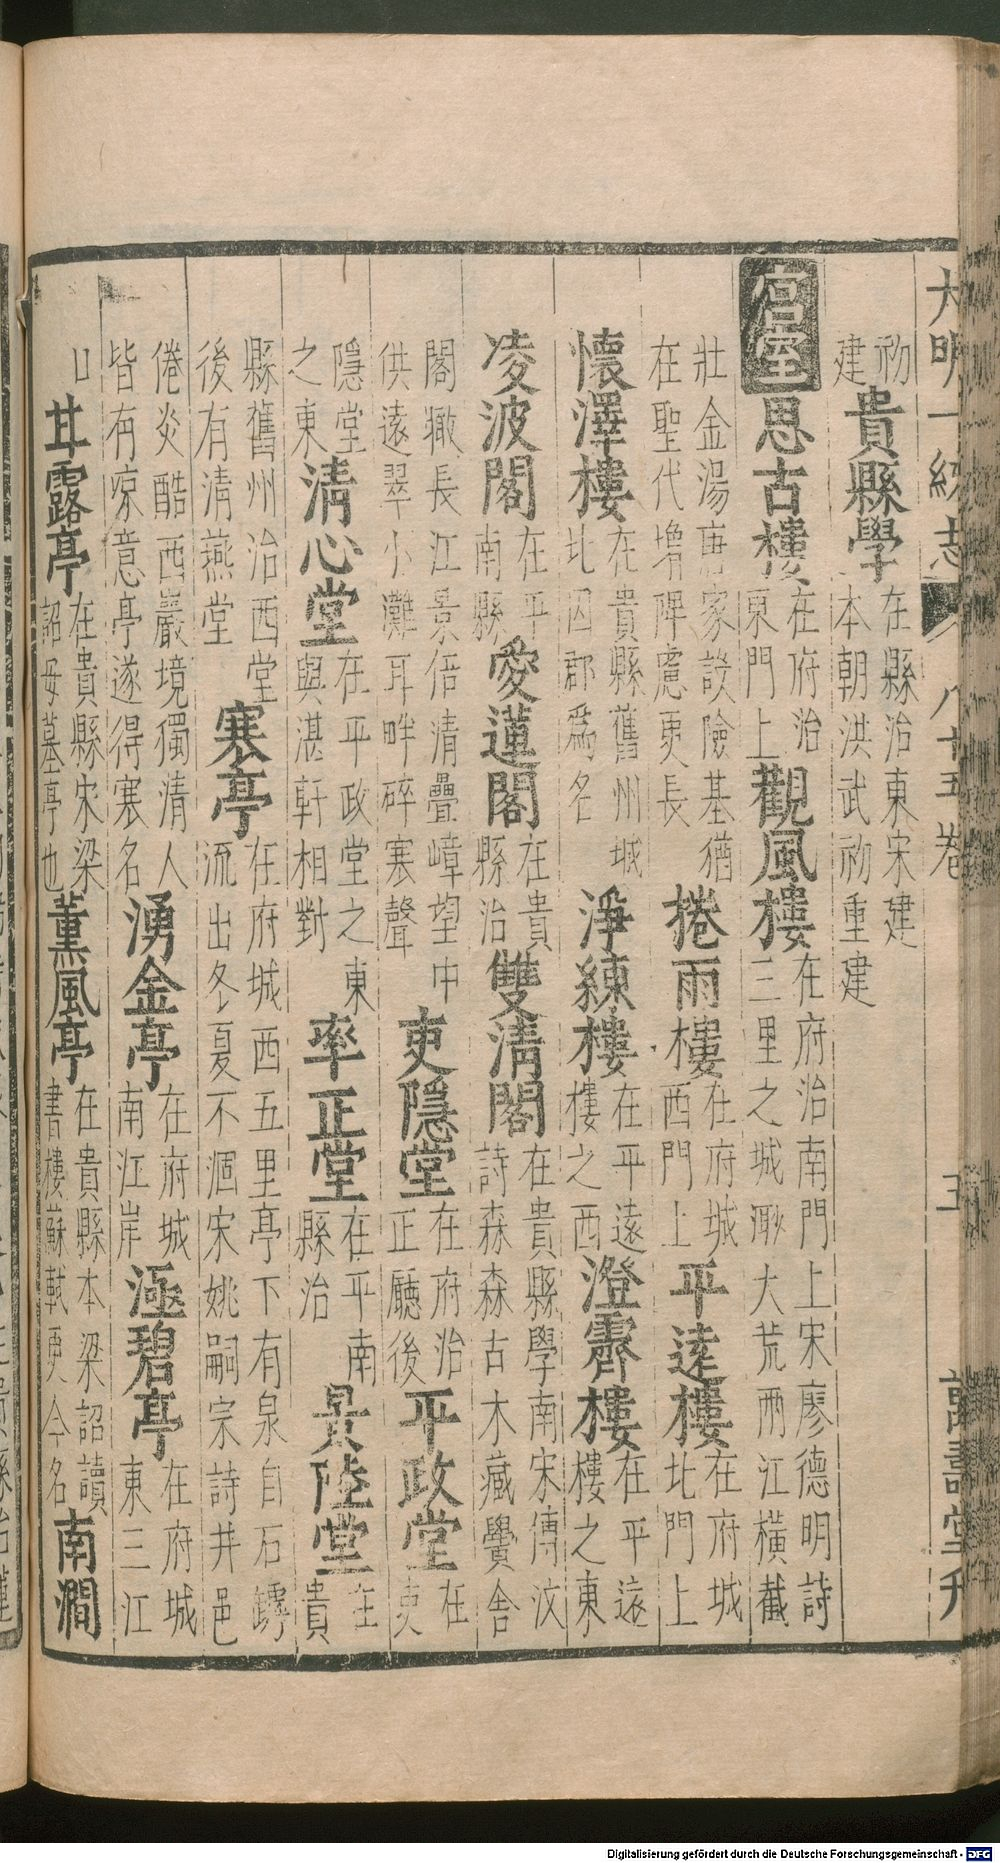 大明一統志 八十五卷 五 萬壽堂刊
初建貴縣學在縣治東宋建本朝洪武初重建
宮室思古樓在府治東門上觀風樓在府治南門上宋廖德明詩三里之城瀕大荒兩江橫截
壯金湯唐家設險基猶在聖代增陴慮更長捲雨樓在府城西門上平遠樓在府城北門上
懷澤樓在貴縣舊州城北因郡為名淨練樓在平遠樓之西澄霽樓在平遠樓之東
凌波閣在平南縣愛蓮閣在貴縣治雙清閣在貴縣學南宋傅汶詩森森古木藏黌舍
閣瞰長江景倍清疊嶂望中供遠翠小灘耳畔碎寒聲吏隱堂在府治正廳後平政堂在吏
隱堂之東清心堂在平政堂之東與湛軒相對率正堂在平南縣治景陸堂在貴
縣舊州治西堂後有清燕堂寒亭在府城西五里亭下有泉自石罅流出冬夏不涸宋姚嗣宗詩井邑
倦炎酷西巖境獨清人皆有凉意亭遂得寒名湧金亭在府城南江岸極碧亭在府城東三江
口甘露亭在貴縣宋梁詔母墓亭也薰風亭在貴縣本梁詔讀書樓蘇軾更今名南澗
Digitalisierung gefördert durch die Deutsche Forschungsgemeinschaft - DFG